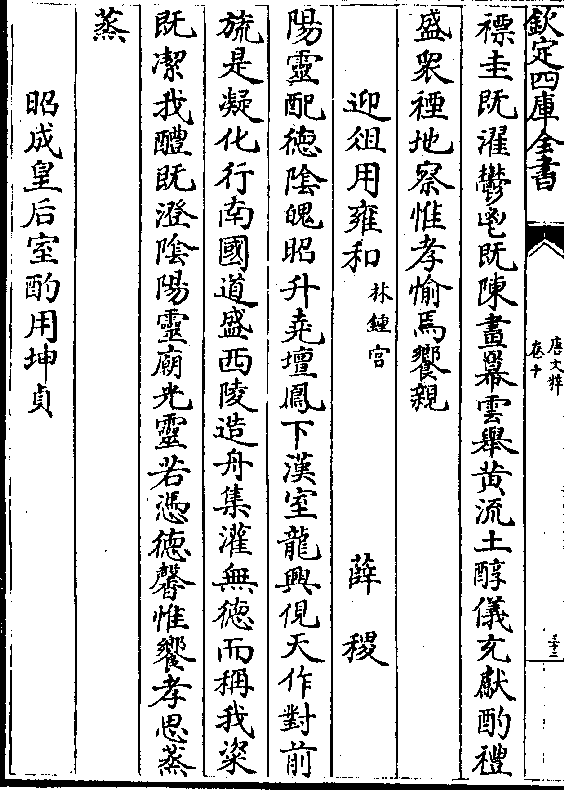 欽定四庫全書
唐文粹
卷十
三十二
禩圭既濯鬱鬯既陳畫冪雲舉黄流土醇儀充獻酌禮
盛衆禋地察惟孝愉焉饗親
迎俎用雍和林鍾宫 薛稷
陽靈配德陰魄昭升堯壇鳳下漢室龍興俔天作對前
旒是凝化行南國道盛西陵造舟集灌無德而稱我粢
既潔我醴既澄隂陽靈廟光靈若憑德馨惟饗孝思蒸
蒸
昭成皇后室酌用坤貞